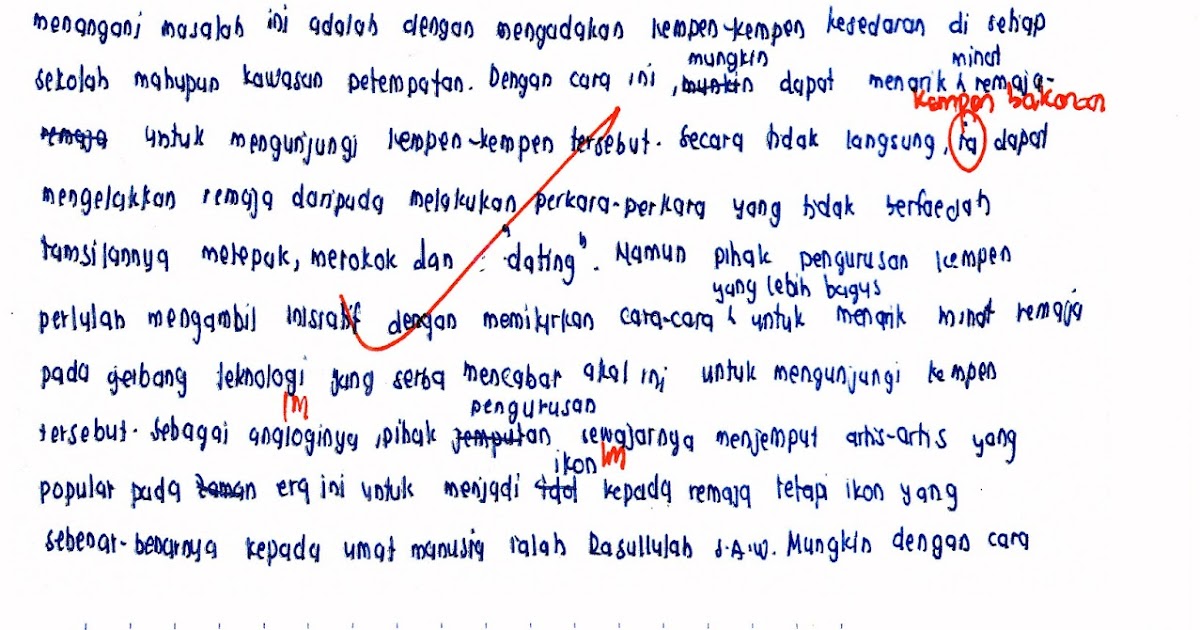 menangani masalah ini adalah dengan mengadakan kempen-kempen kesedaran di setiap
mungkin minat
sekolah mahupun kawasan petempatan. Dengan cara ini, munkin dapat menarik remaja-
kempen bakonan
remaja untuk mengunjungi kempen-kempen tersebut. Secara tidak langsung, ia dapat
mengelakkan remaja daripada melakukan perkara-perkara yang tidak berfaedah
tamsilannya melepak, merokok dan "dating". Namun pihak pengurusan kempen
yang lebih bagus
perlulah mengambil inisiatif dengan memikirkan cara-cara untuk menarik minat remaja
pada gerbang teknologi yang serba mencabar akal ini untuk mengunjungi kempen
lm pengurusan
tersebut. Sebagai anologinya, pihak jemputan sewajarnya menjemput artis-artis yang
ikon lm
popular pada zaman era ini untuk menjadi idol kepada remaja tetapi ikon yang
sebenar-benarnya kepada umat manusia ialah Rasullulah S.A.W. Mungkin dengan cara